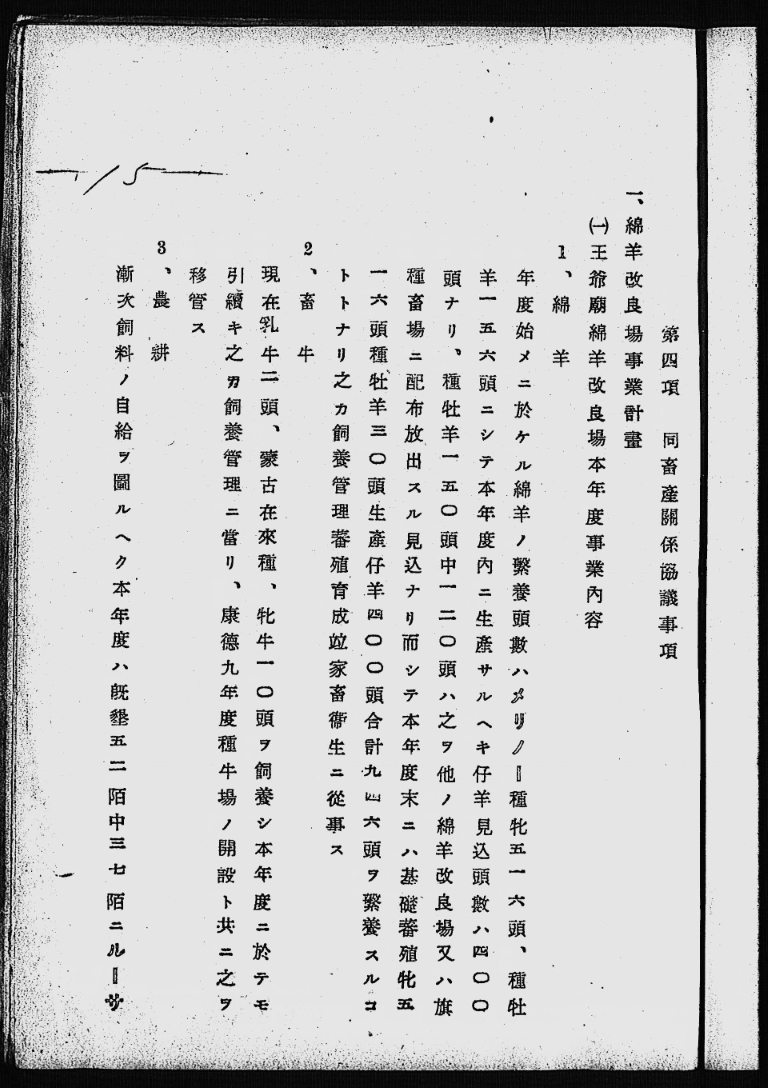 第四項　同畜產關係協議事項
一、綿羊改良場事業計畫
㈠王爺廟綿羊改良場本年度事業內容
1、綿　羊
年度始メニ於ケル綿羊ノ繫養頭數ハメリノー種牝五一六頭、種牡
羊一五六頭ニシテ本年度內ニ生產サルヘキ仔羊見込頭數ハ四〇〇
頭ナリ、種牡羊一五〇頭中一二〇頭ハ之ヲ他ノ綿羊改良場又ハ旗
種畜場ニ配布放出スル見込ナリ而シテ本年度末ニハ基礎蕃殖牝五
一六頭種牡羊三〇頭生產仔羊四〇〇頭合計九四六頭ヲ繫養スルコ
トトナリ之カ飼養管理蕃殖育成竝家畜衞生ニ從事ス
2、畜　牛
現在乳牛二頭、蒙古在來種、牝牛一〇頭ヲ飼養シ本年度ニ於テモ
引續キ之カ飼養管理ニ當リ、康德九年度種牛場ノ開設ト共ニ之ヲ
移管ス
3、農　耕
漸次飼料ノ自給ヲ圖ルヘク本年度ハ旣墾五二陌中三七陌ニルーサ
15